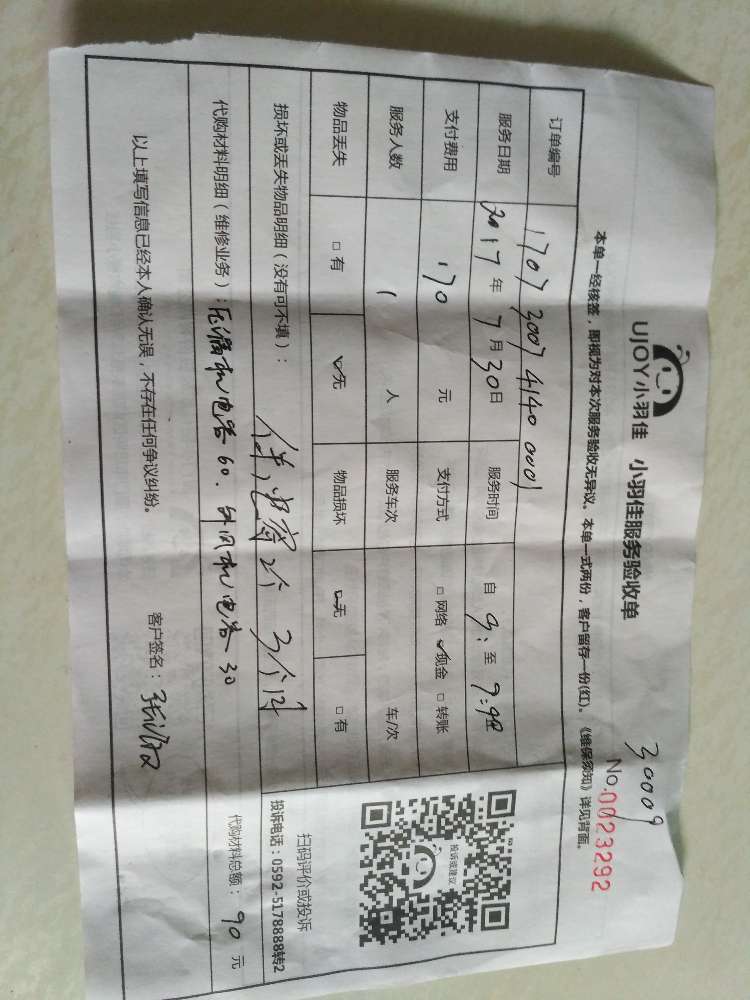 30009
UJOY小羽佳 小羽佳服务验收单
No.0023292
本单一经核签，即视为对本次服务验收无异议。本单一式两份，客户留存一份(红)。《维保须知》详见背面。
订单编号 1707 3007 4140 0001
服务日期 2017 年 7 月 30 日 服务时间 自 9: 至
支付费用 170 元 支付方式 □ 网络 ☑ 现金 □ 转账
服务人数 1 人 服务车次 车/次
物品丢失 □ 有 ☑ 无 物品损坏 ☑ 无 □ 有
投诉或建议
扫码评价或投诉
投诉电话：0592-5178888转2
损坏或丢失物品明细（没有可不填）： 2个 3个月
代购材料明细（维修业务）： 电容60. 外风机电容30
代购材料总额： 90 元
以上填写信息已经本人确认无误，不存在任何争议纠纷。 客户签名：